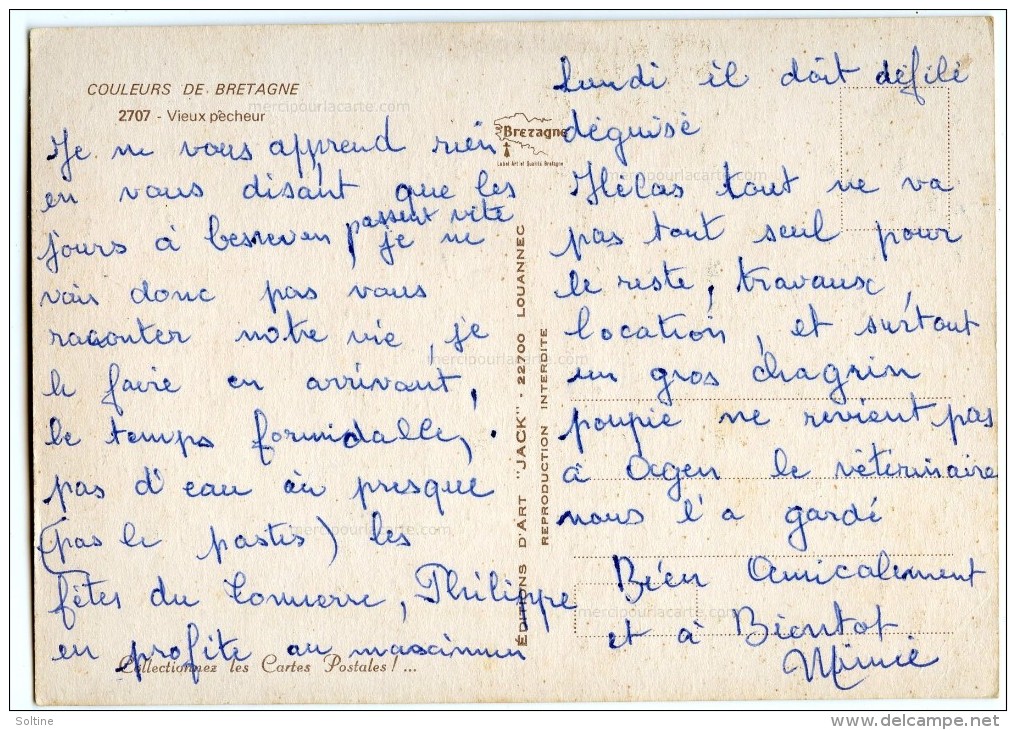 COULEURS DE BRETAGNE
2707 - Vieux pêcheur
Je ne vous apprend rien
en vous disant que les
passent vite
jours à besneven, je ne
vais donc pas vous
raconter notre vie, je
le faire en arrivant,
le temps formidalle,
pas d'eau ou presque
(pas le pastis) les
fêtes du Commerce, Philippe
en profite au maximum
Collectionnez les Cartes Postales ! ...
Brezagne
Label Art et Qualité Bretagne
ÉDITIONS D'ART "JACK" - 22700 LOUANNEC
REPRODUCTION INTERDITE
Lundi il doit défilé
déguisé
Hélas tout ne va
pas tout seul pour
le reste, travaux,
location, et surtout
un gros chagrin
poupie ne revient pas
à Agen le vétérinaire
nous l'a gardé
Bien Amicalement
et à Bientot.
Mimie
mercipourlacarte.com
mercipourlacarte.com
mercipourlacarte.com
mercipourlacarte.com
mercipourlacarte.com
Soltine
www.delcampe.net